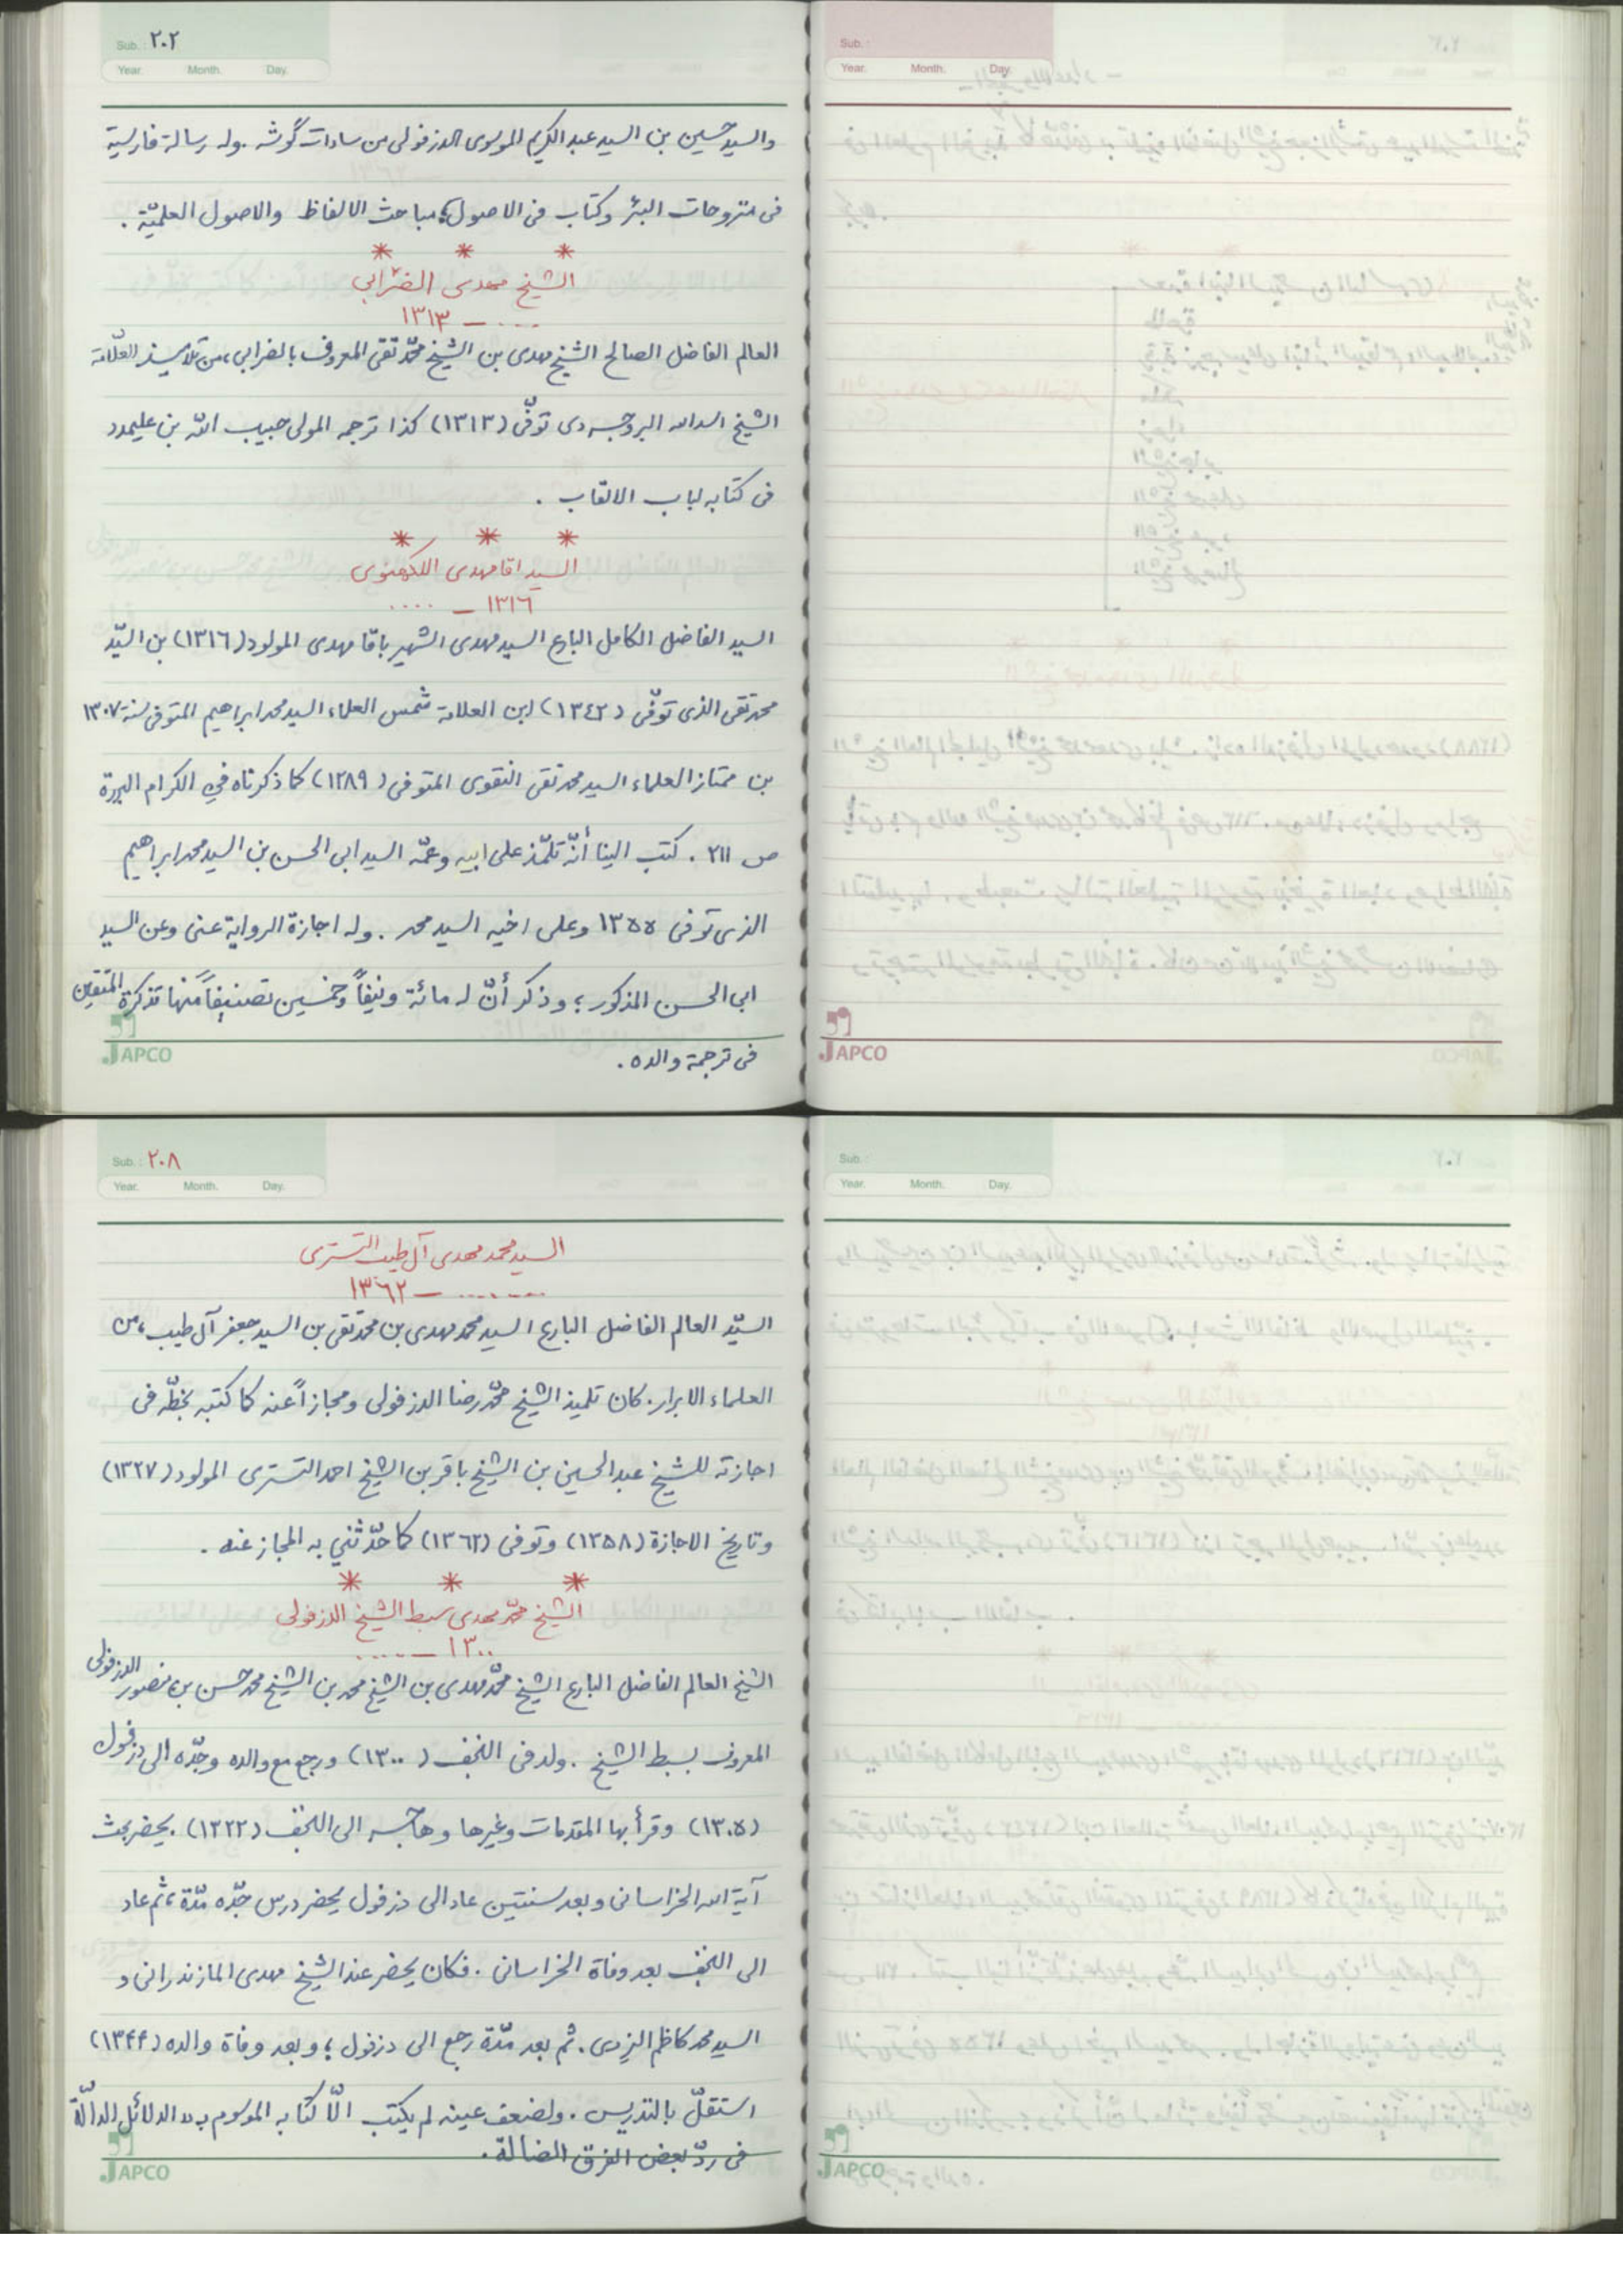 Sub. : ٢٠٢
Year. Month. Day.
والسيد حسين بن السيد عبد الكريم الموسوى الدزفولى من سادات گوشه . وله رسالة فارسية
فى منزوحات البئر وكتاب فى الاصول مباحث الالفاظ والاصول العلميّة .
* * *
الشيخ مهدى الضرابي
.... — ١٣١٣
العالم الفاضل الصالح الشيخ مهدى بن الشيخ محمّد تقى المعروف بالضرابى، من تلاميذ العلّامة
الشيخ اسدالله البروجردى توفّى (١٣١٣) كذا ترجمه المولى حبيب الله بن عليمدد
فى كتابه لباب الالقاب .
* * *
السيد اقا مهدى اللكهنوى
١٣١٦ — ....
السيد الفاضل الكامل البارع السيد مهدى الشهير باقا مهدى المولود (١٣١٦) بن السيّد
محمد تقى الذى توفّى (١٣٤٢) ابن العلامة شمس العلماء السيد محمد ابراهيم المتوفى سنة ١٣٠٧
بن ممتاز العلماء السيد محمد تقى النقوى المتوفى (١٢٨٩) كما ذكرناه في الكرام البررة
ص ٢١١ . كتب الينا أنّه تلمّذ على ابيه وعمّه السيد ابى الحسن بن السيد محمد ابراهيم
الذى توفى ١٣٥٥ وعلى اخيه السيد محمد . وله اجازة الرواية عنى وعن السيد
ابى الحسن المذكور ؛ وذكر أنّ له مائة ونيفاً وخمسين تصنيفاً منها تذكرة المتقين
فى ترجمة والده .
JAPCO
Sub. :
Year. Month. Day.
JAPCO
Sub. : ٢٠٨
Year. Month. Day.
السيد محمد مهدى آل طيب التسترى
....... — ١٣٦٢
السيّد العالم الفاضل البارع السيد محمد مهدى بن محمد تقى بن السيد جعفر آل طيب ، من
العلماء الابرار . كان تلميذ الشيخ محمّد رضا الدزفولى ومجازاً عنه كما كتبه بخطّه فى
اجازته للشيخ عبد الحسين بن الشيخ باقر بن الشيخ احمد التسترى المولود (١٣٢٧)
وتاريخ الاجازة (١٣٥٨) وتوفى (١٣٦٢) كما حدّثني به المجاز عنه .
* * *
الشيخ محمّد مهدى سبط الشيخ الدزفولى
١٣٠٠ — ....
الشيخ العالم الفاضل البارع الشيخ محمّد مهدى بن الشيخ محمد بن الشيخ محمد حسن بن منصور الدزفولى
المعروف بسبط الشيخ . ولد فى النجف (١٣٠٠) ورجع مع والده وجدّه الى دزفول
(١٣٠٥) وقرأ بها المقدمات وغيرها وهاجر الى النجف (١٣٢٢) . يحضر بحث
آية الله الخراسانى وبعد سنتين عاد الى دزفول يحضر درس جدّه مدّة ، ثم عاد
الى النجف بعد وفاة الخراسانى . فكان يحضر عند الشيخ مهدى المازندرانى و
السيد محمد كاظم اليزدى . ثم بعد مدّة رجع الى دزفول ؛ وبعد وفاة والده (١٣۴۴)
استقلّ بالتدريس . ولضعف عينه لم يكتب الّا كتابه الموسوم بـ « الدلائل الدالّة
فى ردّ بعض الفرق الضالة .
JAPCO
Sub. :
Year. Month. Day.
JAPCO